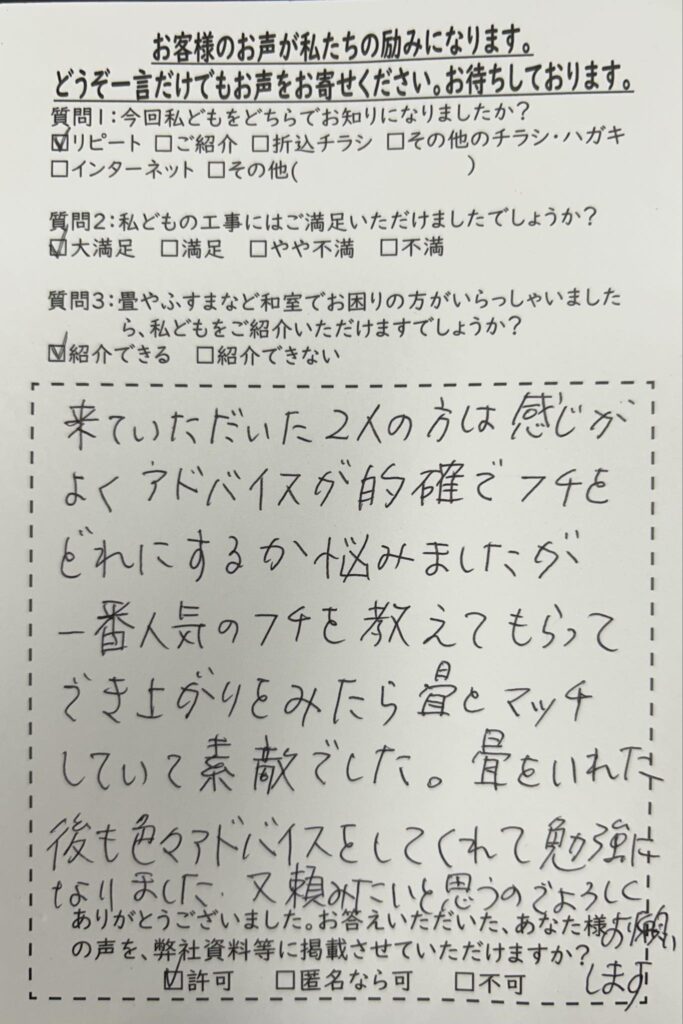 お客様のお声が私たちの励みになります。
どうぞ一言だけでもお声をお寄せください。お待ちしております。
質問1:今回私どもをどちらでお知りになりましたか?
☑リピート □ご紹介 □折込チラシ □その他のチラシ・ハガキ
□インターネット □その他( )
質問2:私どもの工事にはご満足いただけましたでしょうか?
☑大満足 □満足 □やや不満 □不満
質問3:畳やふすまなど和室でお困りの方がいらっしゃいました
ら、私どもをご紹介いただけますでしょうか?
☑紹介できる □紹介できない
来ていただいた2人の方は感じが
よくアドバイスが的確でフチを
どれにするか悩みましたが
一番人気のフチを教えてもらって
でき上がりをみたら畳とマッチ
していて素敵でした。畳をいれた
後も色々アドバイスをしてくれて勉強に
なりました。又頼みたいと思うのでよろしく
お願い
します
ありがとうございました。お答えいただいた、あなた様
の声を、弊社資料等に掲載させていただけますか?
☑許可 □匿名なら可 □不可